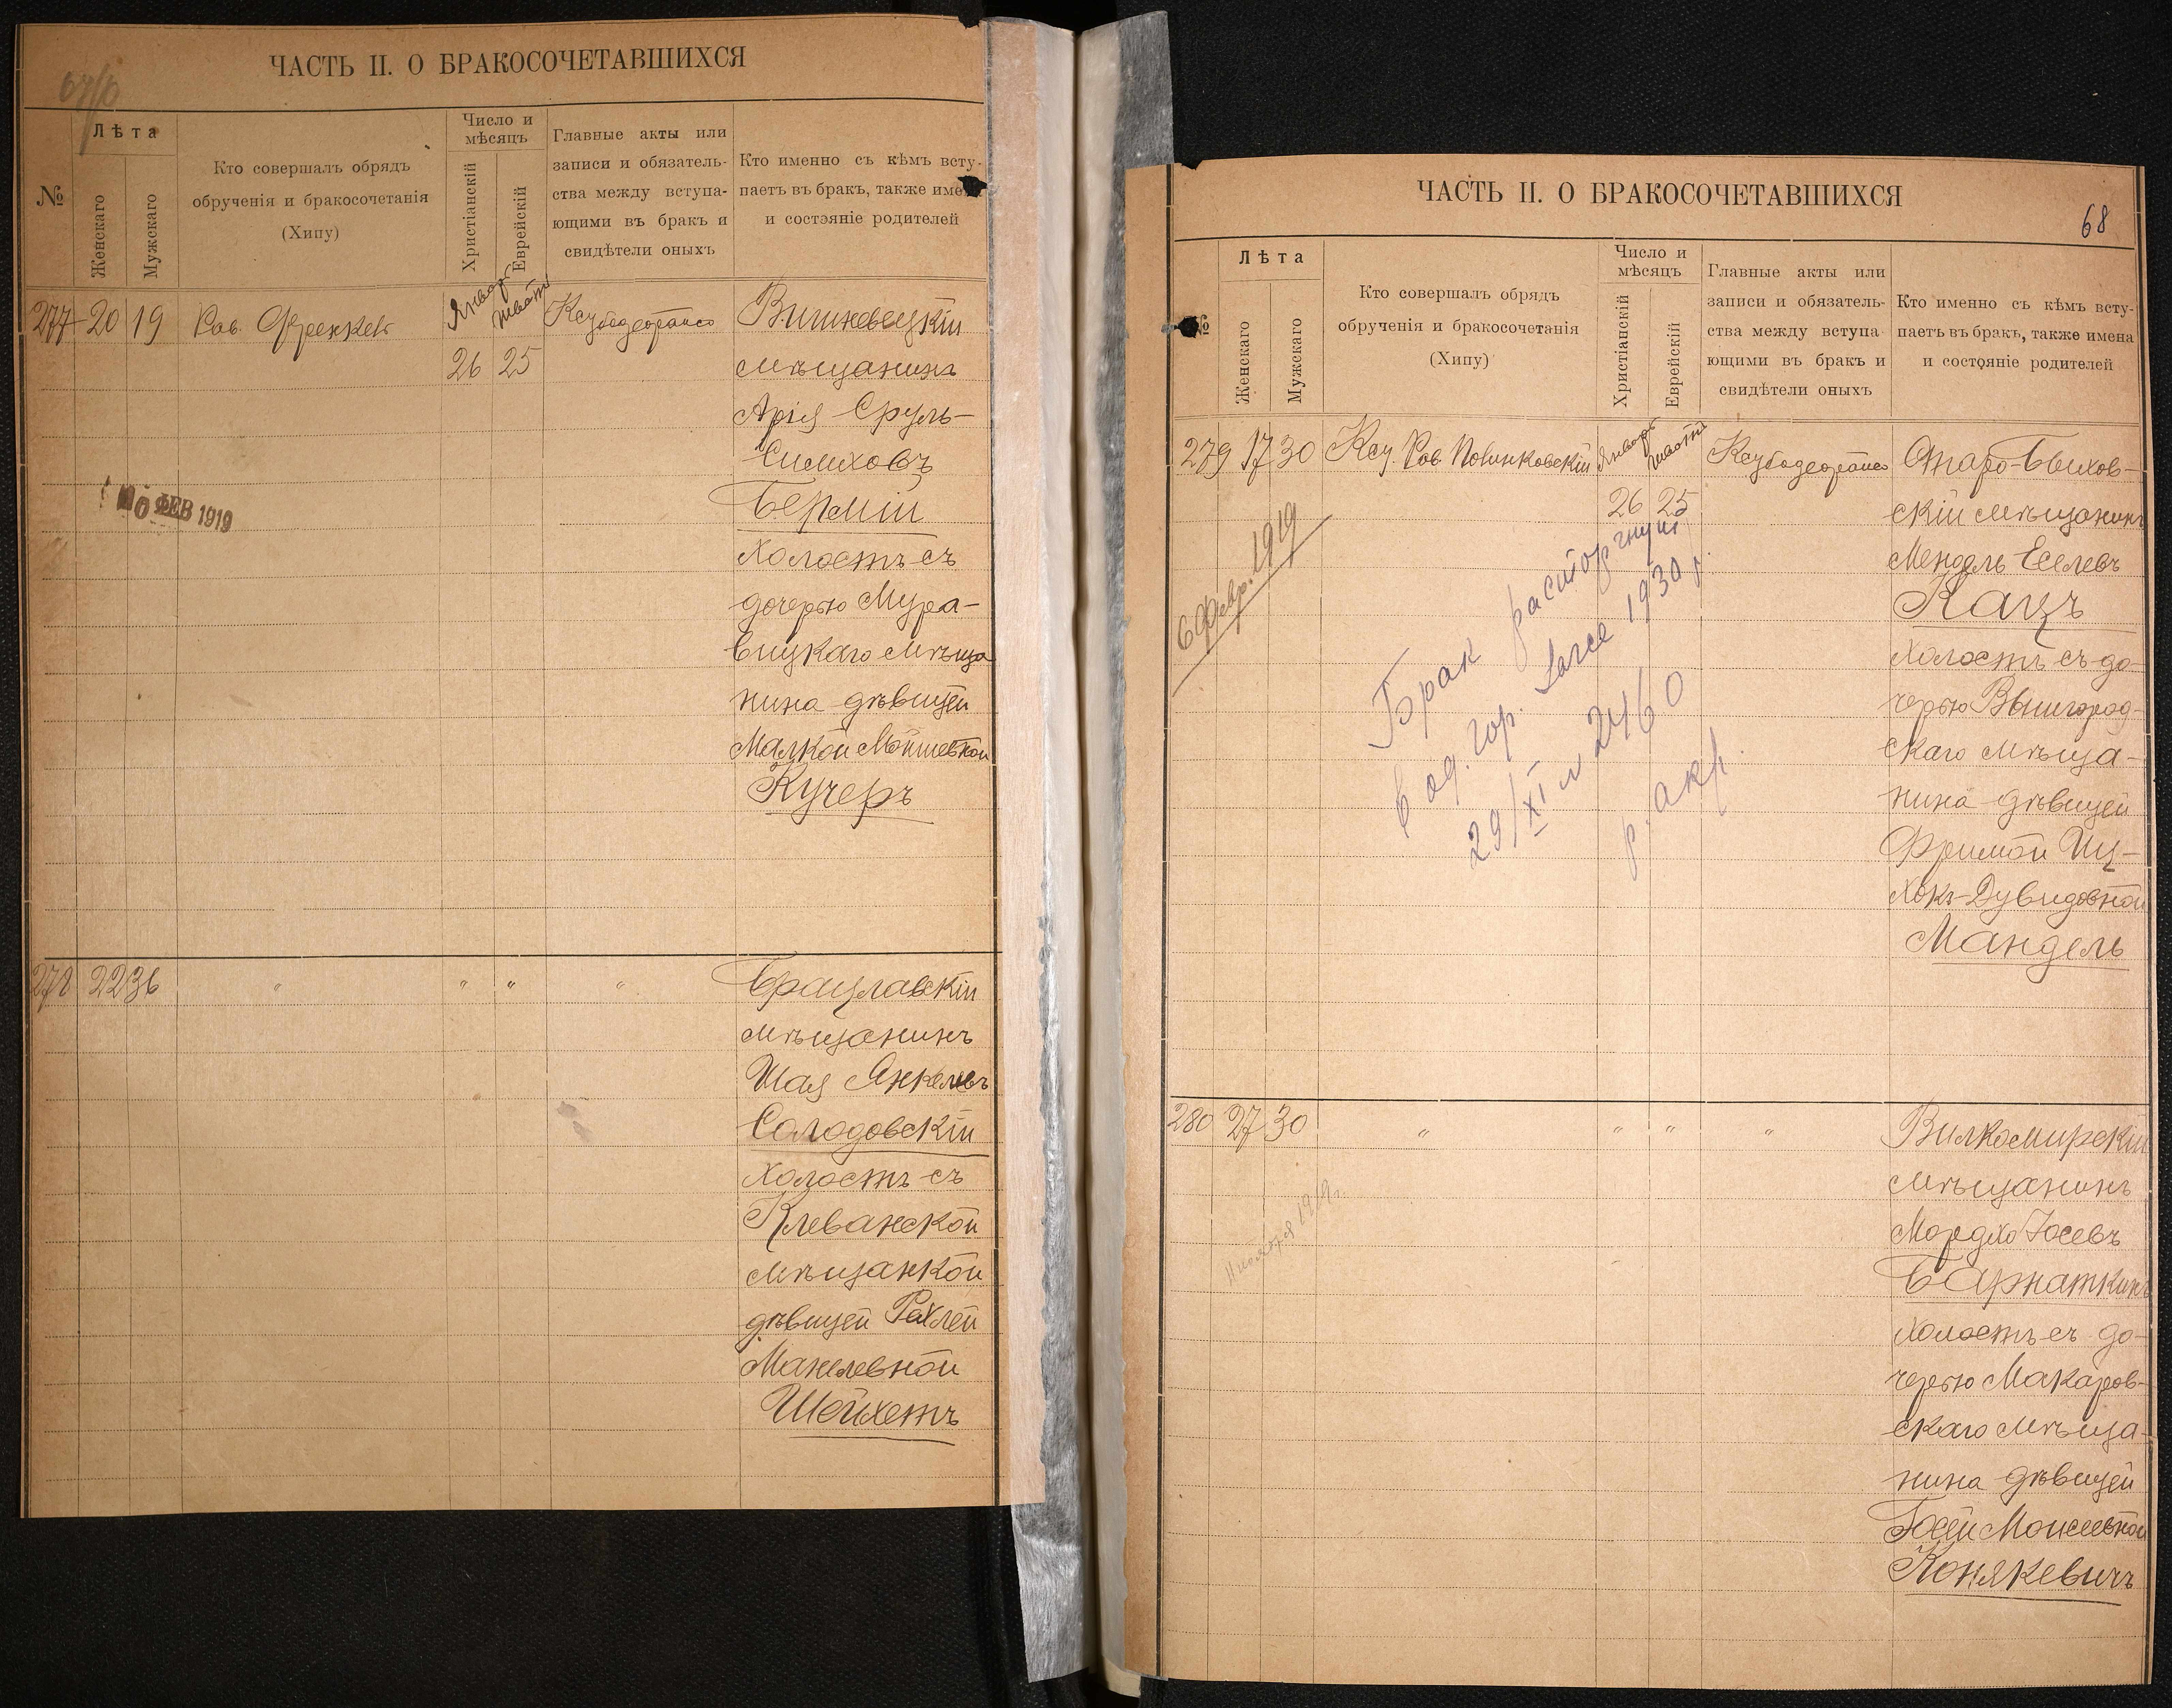 ЧАСТЬ II. О БРАКОСОЧЕТАВШИХСЯ
№
Лѣта
Женскаго
Мужскаго
Кто совершалъ обрядъ
обрученія и бракосочетанія
(Хипу)
Число и
мѣсяцъ
Христіанскій
Еврейскій
Главные акты или
записи и обязатель-
ства между вступа-
ющими въ бракъ и
свидѣтели оныхъ
Кто именно съ кѣмъ всту-
паетъ въ бракъ, также имена
и состояніе родителей
277 20 19 Рав. Френкель
Январь
26 25
Вишневецкій
мѣщанинъ
Арія Сруль-
Симховъ
Бермій
холостъ съ
дочерью Мура-
вицкаго мѣща
нина дѣвицей
Малкой Мошевной
Кучеръ
10 ФЕВ 1919
278 22 36 " " " "
Брацлавскій
мѣщанинъ
Шая Янкелевъ
Солодовскій
холостъ съ
Клеванской
мѣщанкой
дѣвицей Рахлей
Манелевной
Шойхетъ
ЧАСТЬ II. О БРАКОСОЧЕТАВШИХСЯ
68
№
Лѣта
Женскаго
Мужскаго
Кто совершалъ обрядъ
обрученія и бракосочетанія
(Хипу)
Число и
мѣсяцъ
Христіанскій
Еврейскій
Главные акты или
записи и обязатель-
ства между вступа
ющими въ бракъ и
свидѣтели оныхъ
Кто именно съ кѣмъ всту-
паетъ въ бракъ, также имена
и состояніе родителей
279 17 30 Рав.
Январь
26 25
Старо-Быхов-
скій мѣщанинъ
Мендель Еселевъ
Кацъ
холостъ съ до-
черью Вышгород-
скаго мѣща-
нина дѣвицей
Фримой Иц-
хокъ-Дувидовной
Мандель
6 Февр. 1919
Брак расторгнут
в од. гор. 1930 г.
29/XI № 2460
280 27 30 " " " "
Вилкомирскій
мѣщанинъ
Мордхо Іосевъ
Барнаткинъ
холостъ съ до-
черью Макаров-
скаго мѣща-
нина дѣвицей
Моисеевной
Конякевичъ
1919 г.